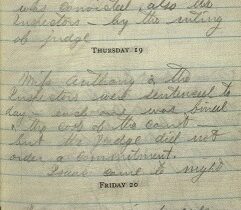 was convicted, also the
Inspectors - by the ruling
of judge
THURSDAY 19
Miss Anthony & the
Inspectors were sentenced to
day - each one was bined
& the cost of the court
but the Judge did not
order a commitment.
came to night
FRIDAY 20